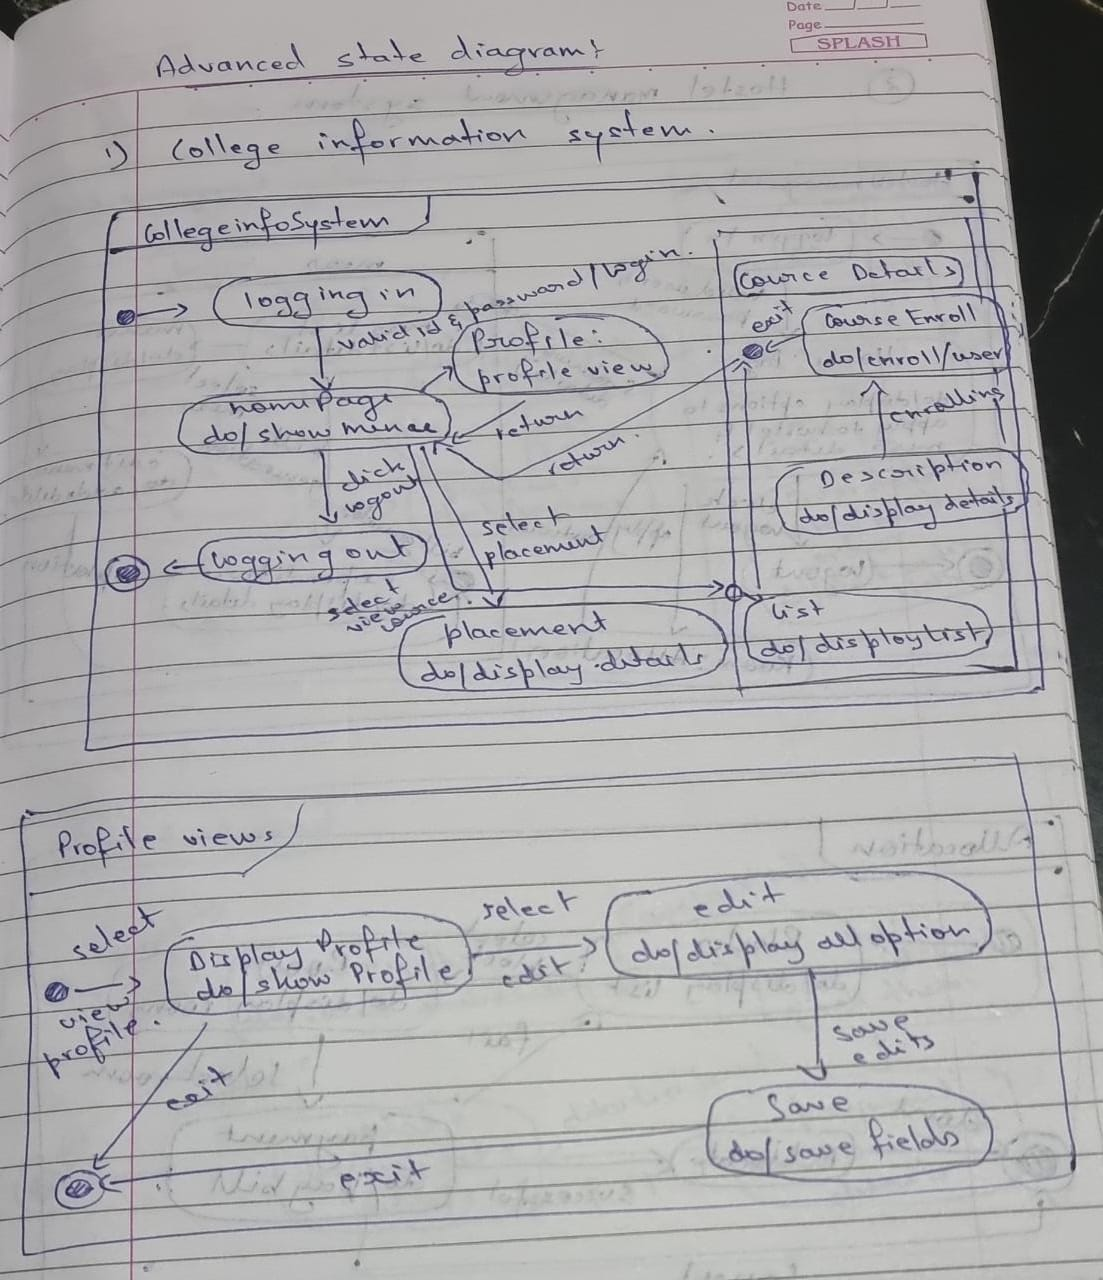 Date
Page
SPLASH
Advanced state diagram:
1) College information system.
CollegeinfoSystem
logging in
valid id & password/login.
Profile:
profile view
homePage
do/show menue
return
return.
click
logout
logging out
select
placement
select
view
cource.
placement
do/display details
Cource Details
exit
Course Enroll
do/enroll/user
enrolling
Description
do/display details
list
do/display list
Profile views
select
view
profile.
Display Profile
do/show Profile
select
edit
edit
do/display all option
save
edits
Save
do/save fields
exit
exit